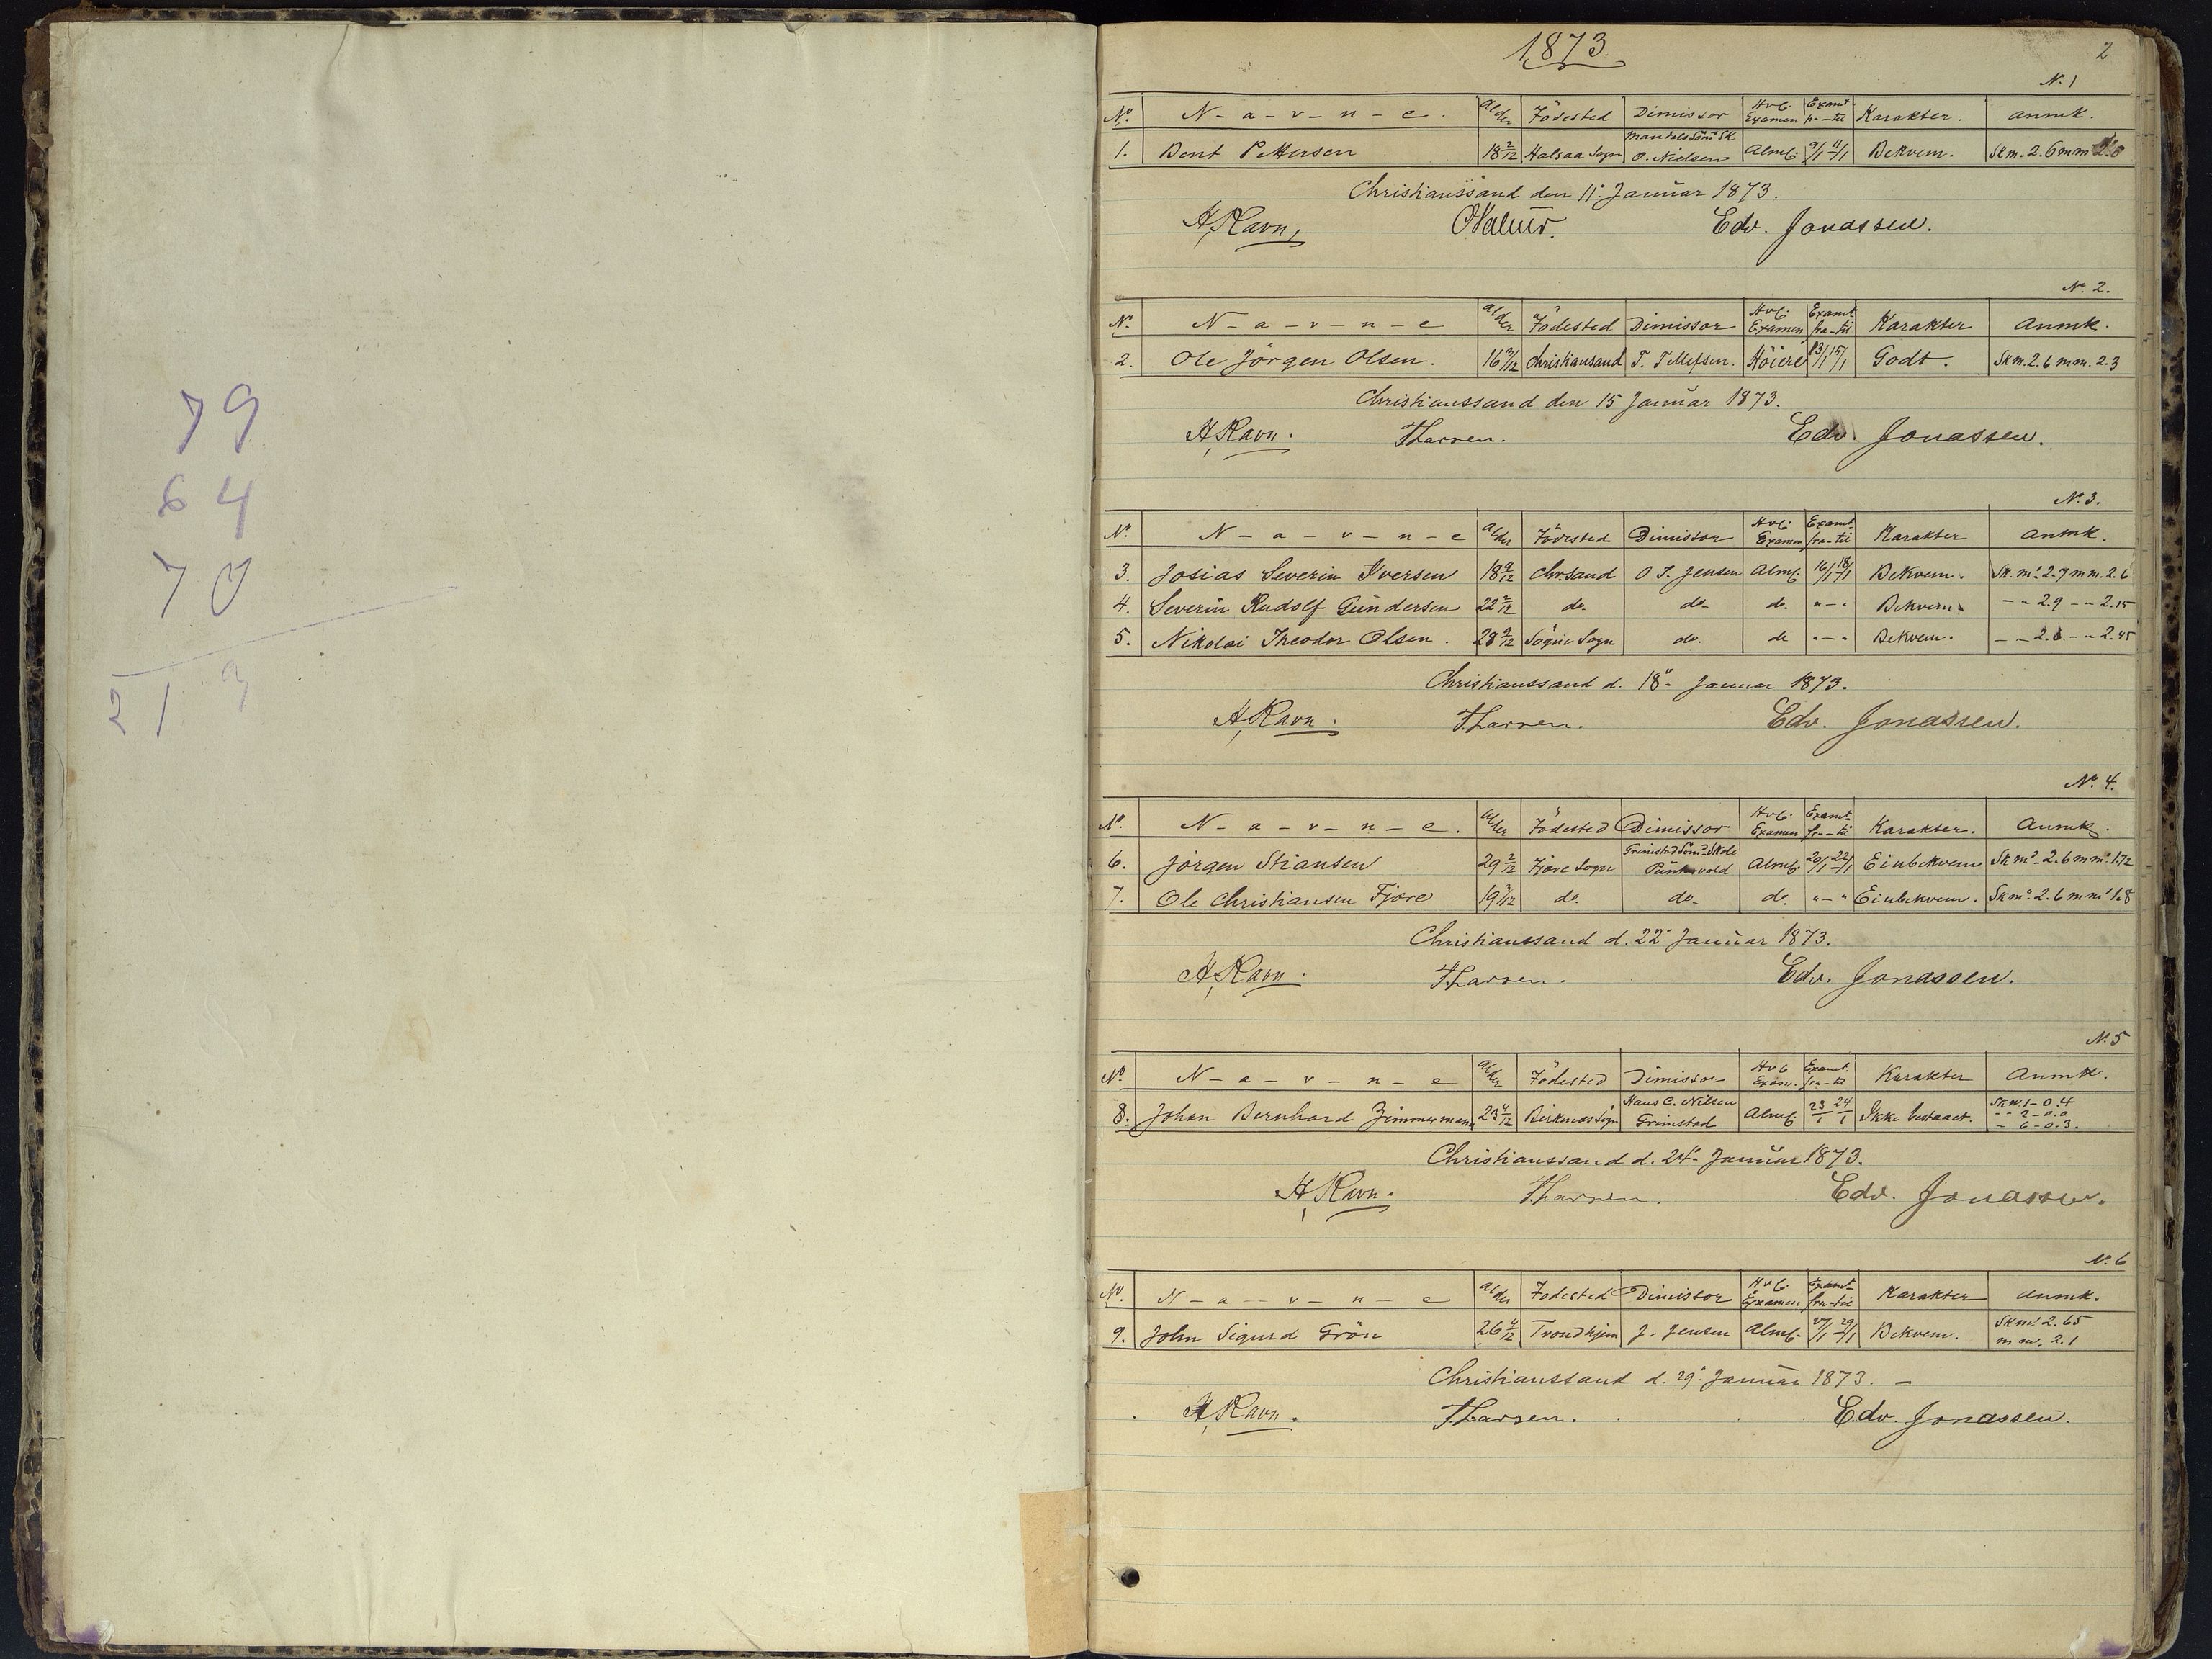 79
64
70
213
1873.
2
N. 1
No. N-a-v-n-e. Alder Födested Dimissor Hvlk. Examen Examt. fra-til Karakter. Anmk.
1. Bent Pettersen 18 2/12 Halsaa Sogn Mandals Söm. Sk. O. Nielsen Almlg. 9/1 11/1 Bekvem. Skm. 2.6 mm
Christianssand den 11. Januar 1873.
H, Ravn, Edv. Jonassen.
No. 2.
No. N-a-v-n-e Alder Födested Dimissor Hvlk. Examen Examt. fra-til Karakter Anmk.
2. Ole Jörgen Olsen. 16 Christiansand T. Tellefsen. Höiere 13/1 15/1 Godt. Skm. 2.6 mm. 2.3
Christianssand den 15 Januar 1873.
H, Ravn. T. Larsen. Edv. Jonassen.
No. 3.
No. N-a-v-n-e Alder Födested Dimissor Hvlk. Examen Examt. fra-til Karakter Anmk.
3. Josias Severin Iversen 18 9/12 Chr.sand O J. Jensen Almlg. 16/1 18/1 Bekvem. Sk. m. 2.7 mm. 2.6
4. Severin Rudolf Gundersen 22 2/12 do. do. do. "-" Bekvem. -" 2.9 -" 2.15
5. Nikolai Theodor Olsen. 28 9/12 Sögne Sogn do. do "-" Bekvem. -" 2.8. -" 2.45
Christianssand d. 18. Januar 1873.
H, Ravn. T. Larsen. Edv. Jonassen.
No. 4.
No. N-a-v-n-e. Alder Födested Dimissor Hvlk. Examen Examt. fra-til Karakter. Anmk.
6. Jörgen Stiansen 29 2/12 Fjære Sogn Grimstad Söm. Skole Almlg. 20/1 22/1 Ei ubekvem Sk m. 2.6 mm. 1.72
7. Ole Christiansen Fjære 19 do. do. do. "-" Ei ubekvem. Sk m. 2.6 mm. 1.8
Christianssand d. 22. Januar 1873.
H, Ravn. T. Larsen. Edv. Jonassen.
N. 5
No. N-a-v-n-e Alder Födested Dimissor Hvlk. Exam. Examt. fra-til Karakter Anmk.
8. Johan Bernhard Zimmermann 23 4/12 Birkenæs Sogn Hans C. Nilsen Grimstad Almlg. 23/1 24/1 Ikke bestaaet. Sk.m. 1-0.4
-" 2-0.0
- 6-0.3.
Christianssand d. 24. Januar 1873.
H, Ravn. T. Larsen. Edv. Jonassen.
N. 6
No. N-a-v-n-e Alder Födested Dimissor Hvlk. Examen Examt. fra-til Karakter Anmk.
9. John Sigurd Grön 26 4/12 Trondhjem J. Jensen Almlg. 27/1 29/1 Bekvem. Skm. 2.65
mm. 2.1
Christianssand d. 29. Januar 1873. -
H, Ravn. T. Larsen. Edv. Jonassen.